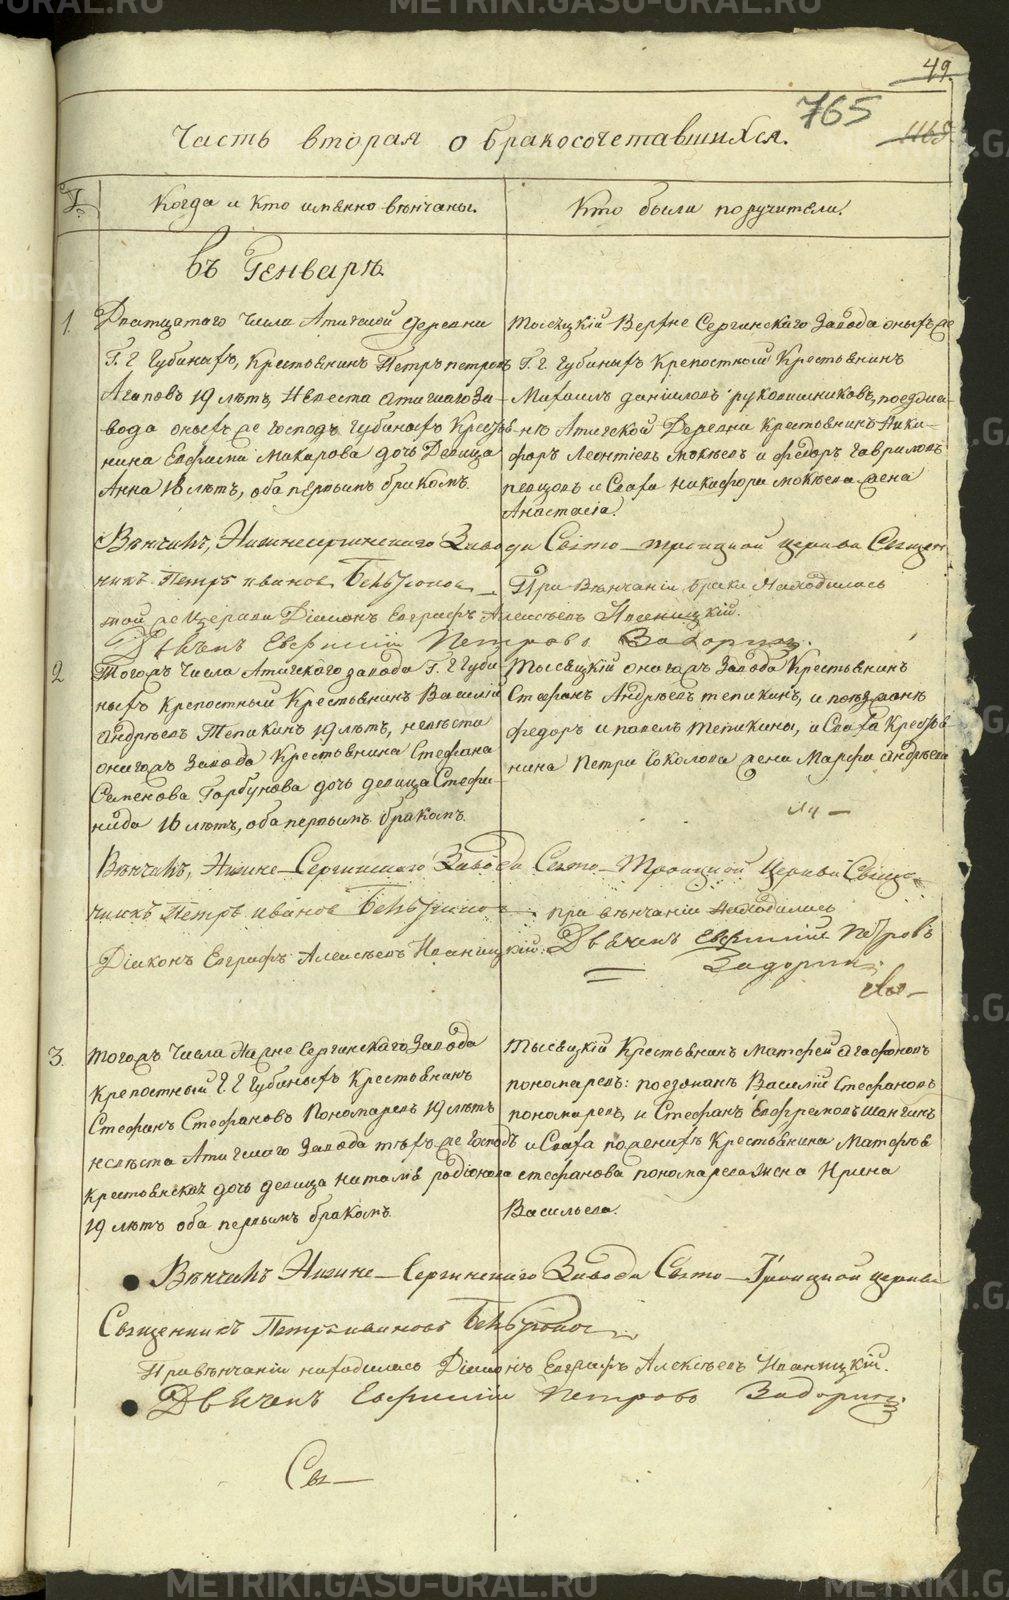 METRIKI.GASO-URAL.RU
49.
765
1165
Часть вторая о бракосочетавшихся.
Когда и кто имянно вѣнчаны.
Кто были поручители.
Въ Генварѣ.
1.
Дватцатаго числа Атигской деревни
Г. Г. Губиныхъ, крестьянинъ Петръ петровъ
Агаповъ 19 лѣтъ, Невеста Атигскаго за-
вода оныхъ же господъ Губиныхъ Крестья-
нина Евфимия Макарова дочь Девица
Анна 18 лѣтъ, оба первымъ бракомъ.
Тысяцкій Верхне Сергинскаго Завода оныхъ же
Г. Г. Губиныхъ Крепостной Крестьянинъ
Михаилъ даниловъ рукопишниковъ, поезжа-
нѣ Атигской Деревни крестьянинъ Ники-
форъ Леонтіевъ Мокѣевъ и федоръ Гавриловъ
певцовъ и Сваха никифора мокѣева жена
Анастасія.
Вѣнчалъ, Нижнесергинскаго Завода Свято-троицкой церкви Священ-
никъ Петръ иванов
При Вѣнчаніи брака Находились
той же Церкви Діаконъ Евграфъ Алексѣевъ Иваницкій.
Дьячекъ Евфимій Петровъ Задорин
2
Тогожъ Числа Атигскаго завода Г. Г. Губи-
ныхъ крепостный Крестьянинъ Василій
андрѣевъ Тепикинъ 19 лѣтъ, невѣста
оногожъ Завода Крестьянина Стефана
Семенова Горбунова дочь девица Стефа-
нида 16 лѣтъ, оба первымъ бракомъ.
Тысяцкій оногожъ Завода Крестьянинъ
Стефанъ Андрѣевъ тепикинъ, и поезжанѣ
федоръ и павелъ Тепикины, и Сваха Крестья-
нина Петра Соколова жена Марфа андрѣева
Вѣнчалъ, Нижне-Сергинскаго Завода Свято-Троицкой Церкви Свяще-
нникъ Петръ иванов
при вѣнчаніи Находились
Діаконъ Евграфъ Алексѣевъ Иваницкій.
Дьячекъ Евфимій Петровъ
Задорин
3.
тогожъ Числа Нижне Сергинскаго Завода
крепостный Г Г Губиныхъ Крестьянинъ
Стефанъ Стефановъ Пономаревъ 19 лѣтъ
невѣста Атигскаго Завода тѣхъ же Господъ
крестьянска дочь девица наталія родіонова
19 лѣтъ оба первымъ бракомъ.
Тысяцкій Крестьянинъ Матфей агафоновъ
пономаревъ: поезжанъ Василій Стефановъ
пономаревъ, и Стефанъ Евфремовъ шангинъ
и Сваха Крестьянина Матфѣя
стефанова пономарева жена Ирина
Васильева.
Вѣнчалъ Нижне-Сергинскаго Завода Свято-Троицкой церкви
Священникъ Петръ ивановъ
При вѣнчаніи находились Діаконъ Евграфъ Алексѣевъ Иваницкій.
Дьячекъ Евфимій Петровъ Задорин
Свя-
METRIKI.GASO-URAL.RU